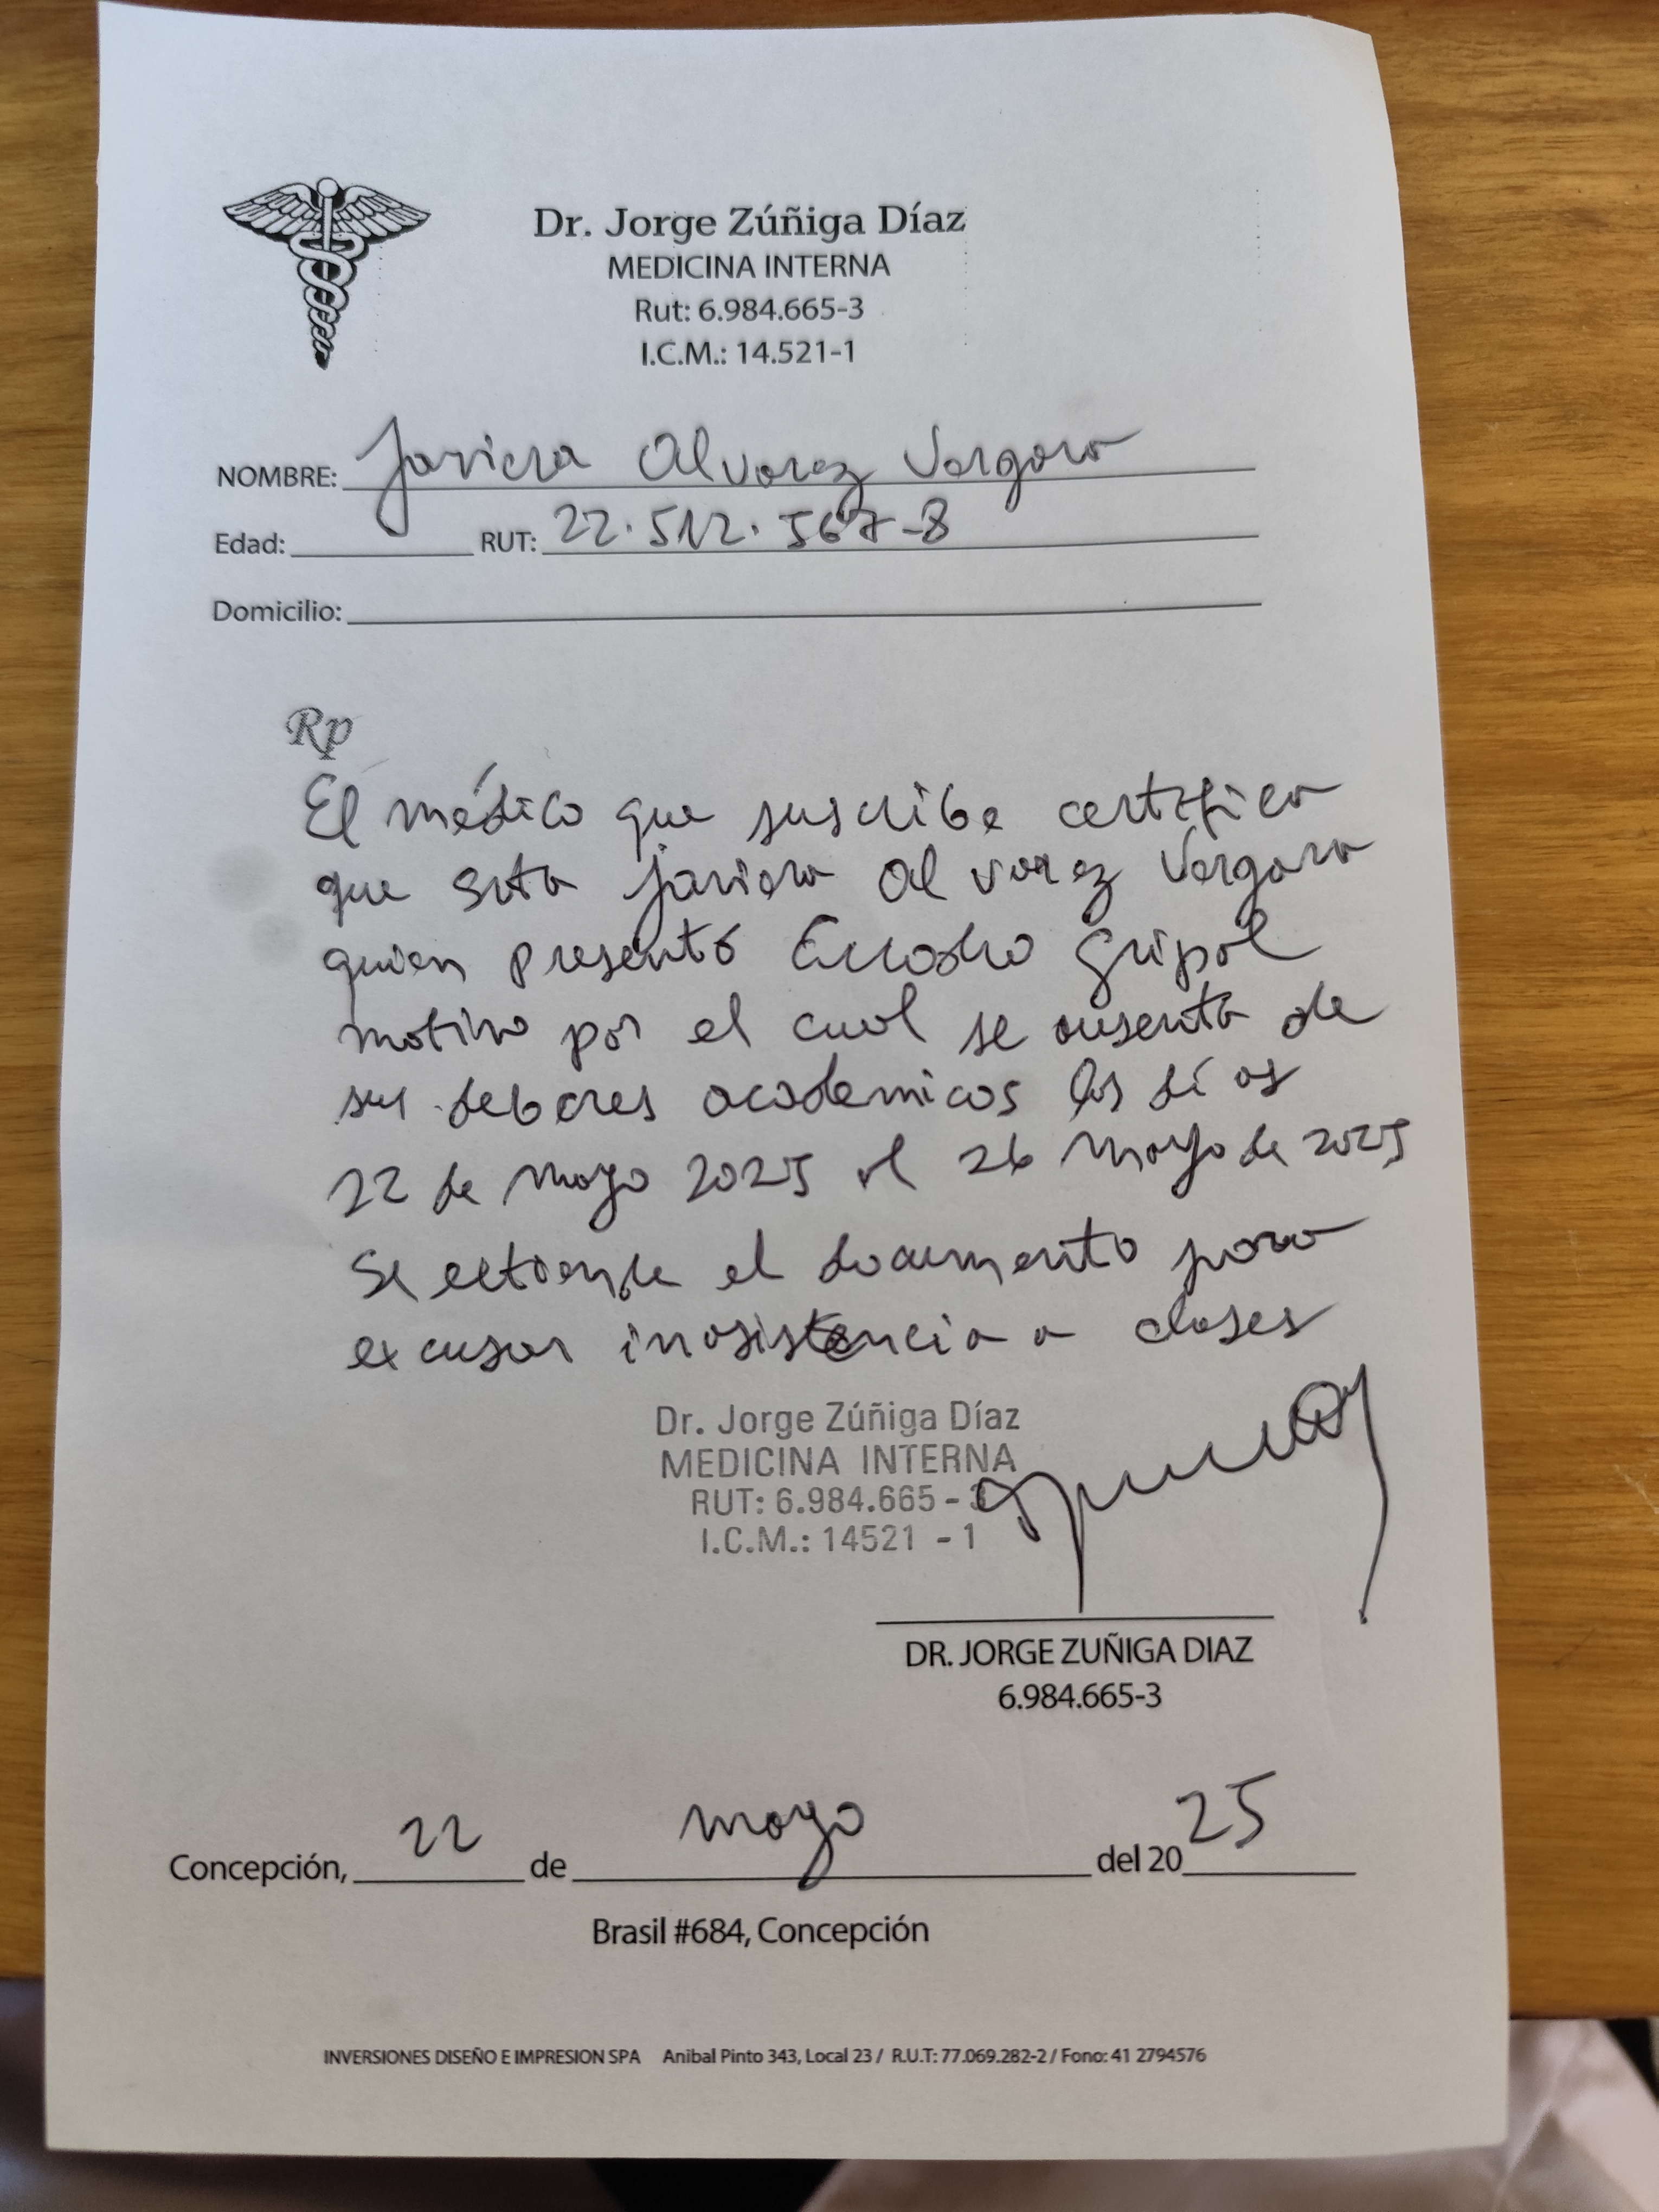 Dr. Jorge Zúñiga Díaz
MEDICINA INTERNA
Rut: 6.984.665-3
I.C.M.: 14.521-1
NOMBRE: Javiera Alvarez Vergara
Edad: RUT: 22.512.567-8
Domicilio:
Rp
El médico que suscribe certifica
que Srta Javiera Alvarez Vergara
quien presentó Cuadro Gripal
motivo por el cual se ausenta de
sus deberes academicos los días
22 de Mayo 2025 al 26 Mayo de 2025
Se extiende el documento para
excusar inasistencia a clases
Dr. Jorge Zúñiga Díaz
MEDICINA INTERNA
RUT: 6.984.665 - 3
I.C.M.: 14521 - 1
DR. JORGE ZUÑIGA DIAZ
6.984.665-3
Concepción, 22 de mayo del 2025
Brasil #684, Concepción
INVERSIONES DISEÑO E IMPRESION SPA Anibal Pinto 343, Local 23 / R.U.T: 77.069.282-2 / Fono: 41 2794576